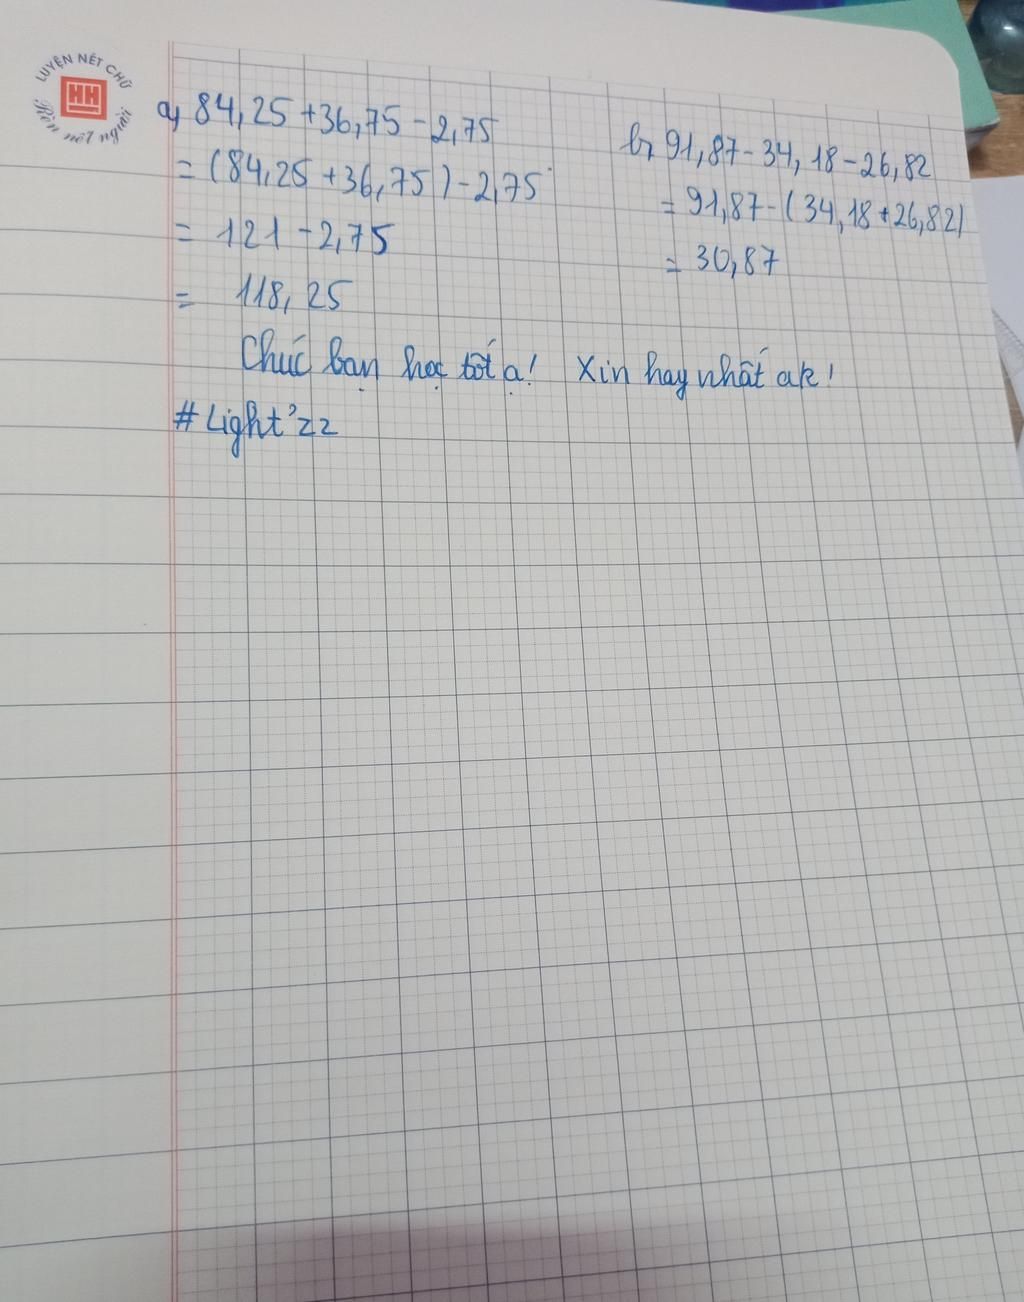 LUYỆN NÉT CHỮ
HH
Rèn nết người
a, 84,25 + 36,75 - 2,75
= (84,25 + 36,75) - 2,75
= 121 - 2,75
= 118,25
b, 91,87 - 34,18 - 26,82
= 91,87 - (34,18 + 26,82)
= 30,87
Chúc bạn học tốt ạ! Xin hay nhất ak!
#Light'zz